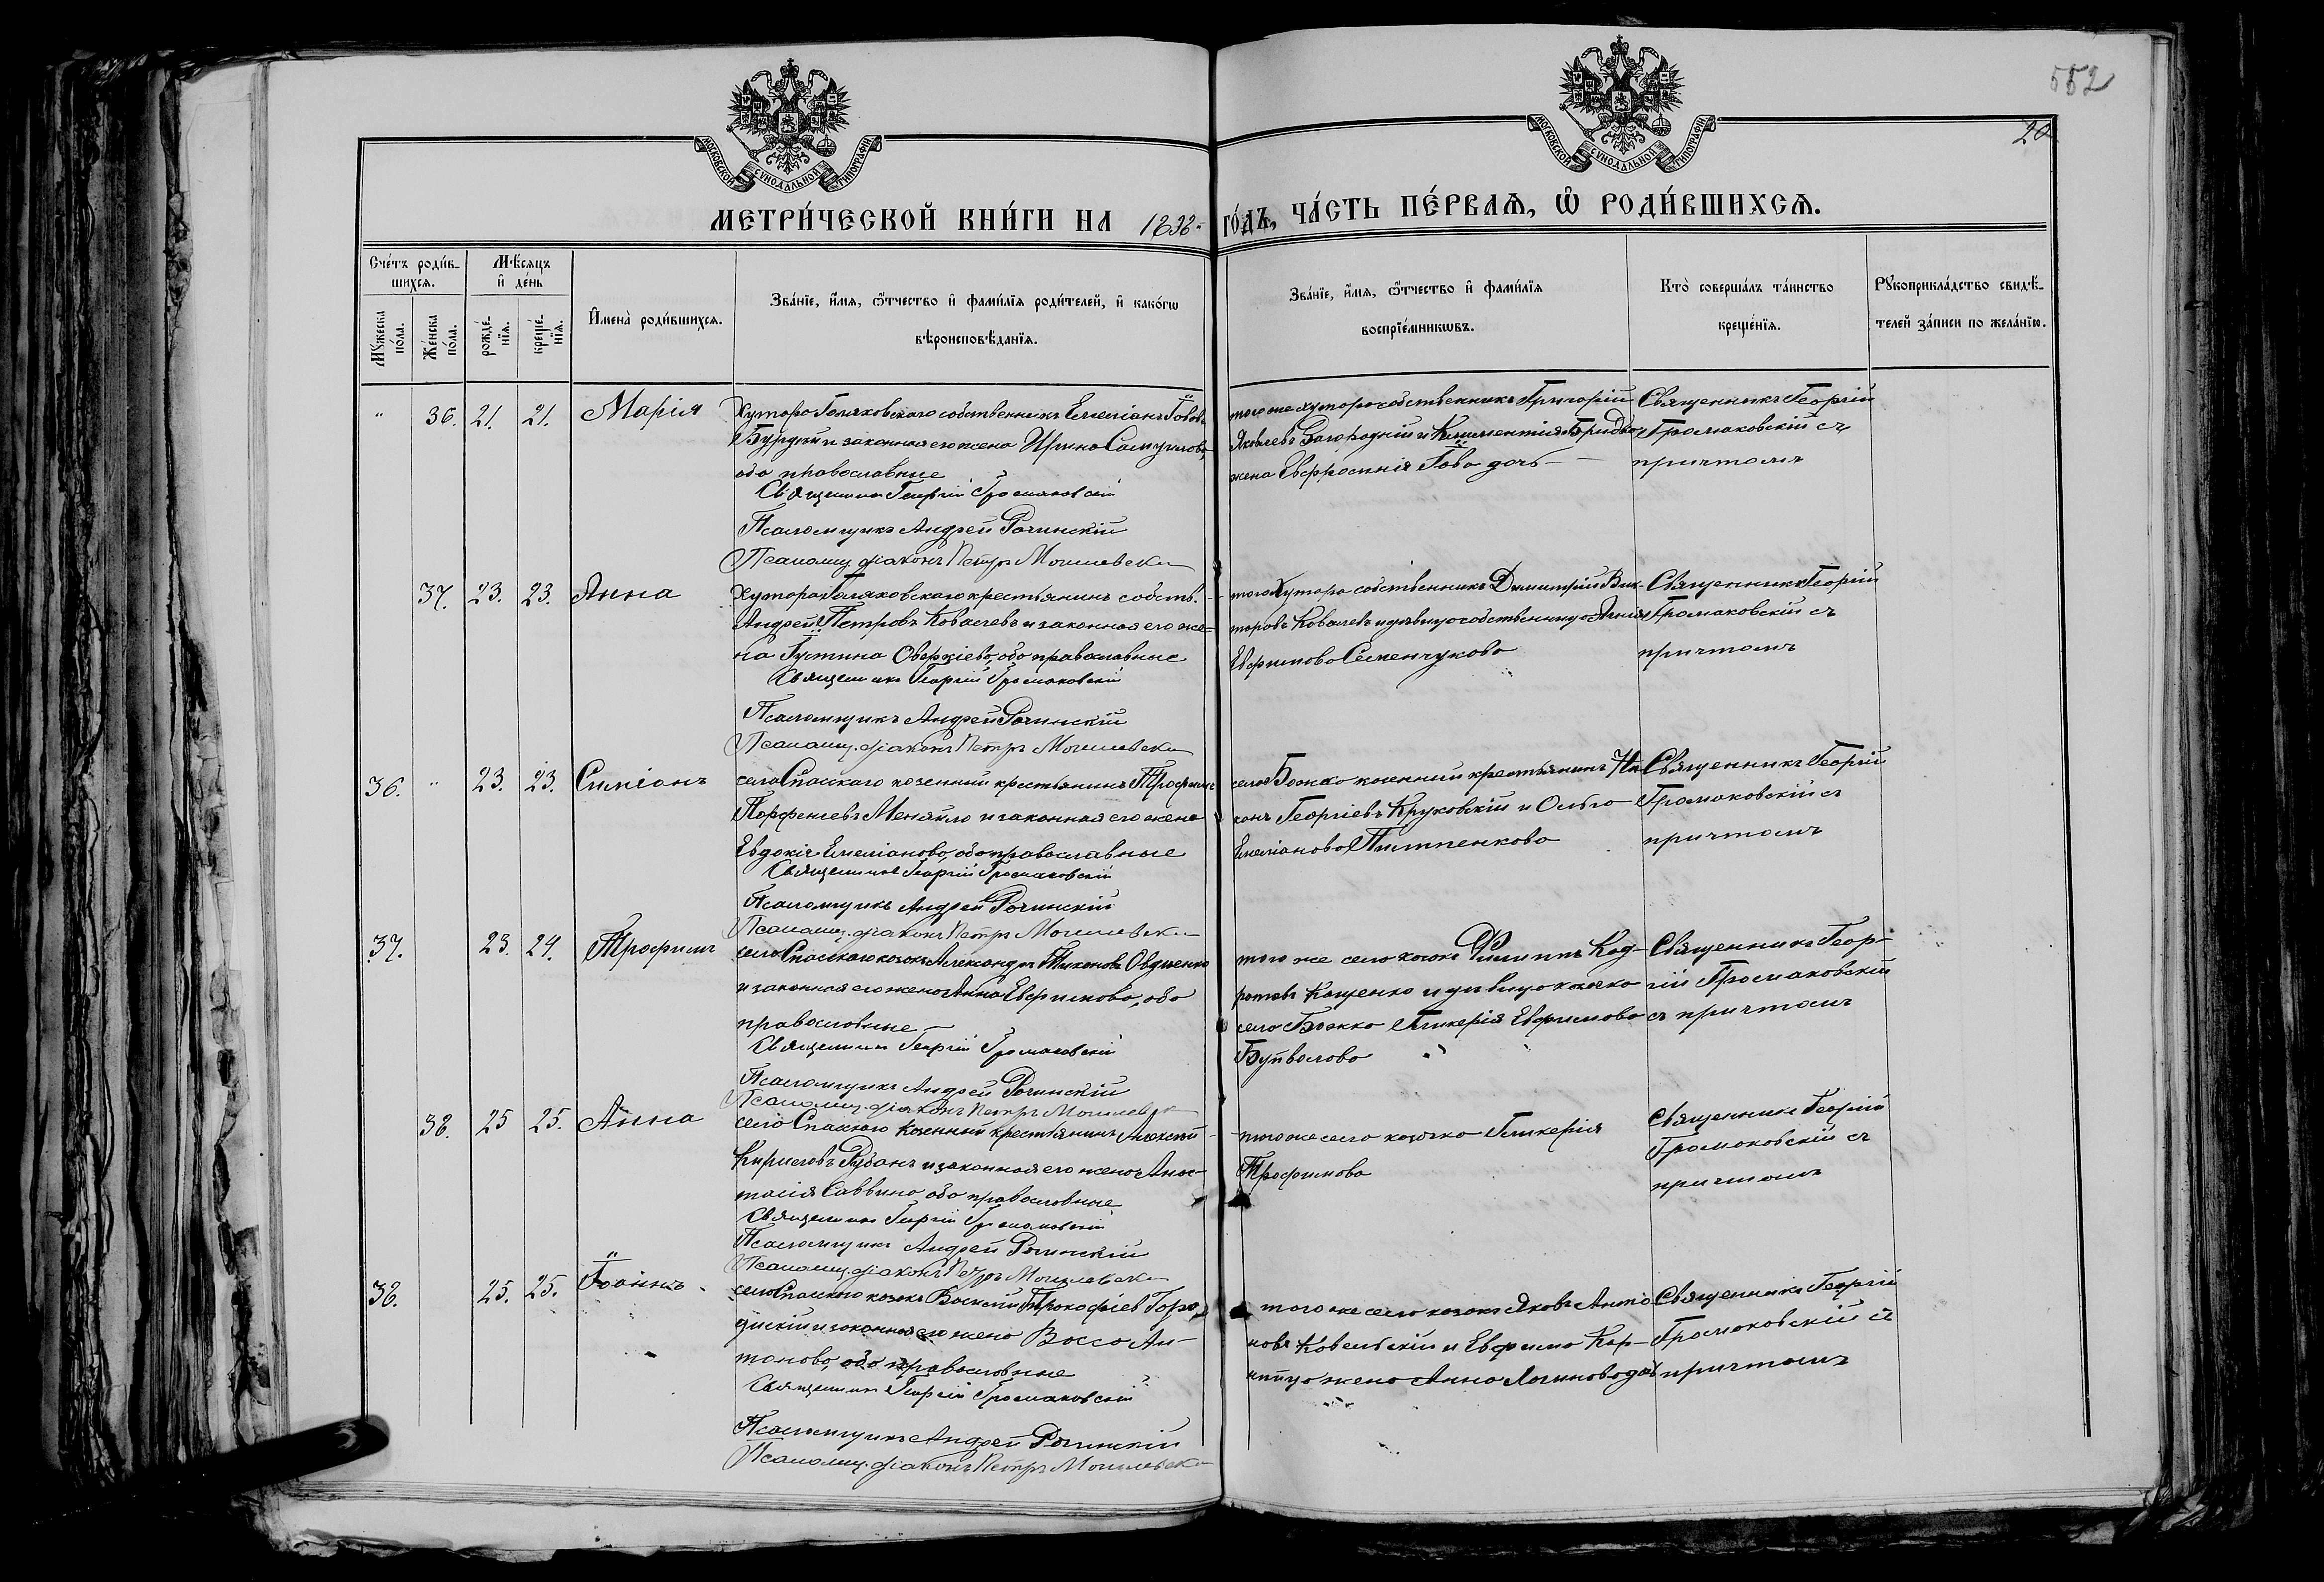 552
20
МОСКОВСКОЙ СѴНОДАЛЬНОЙ ТИПОГРАФІИ
МОСКОВСКОЙ СѴНОДАЛЬНОЙ ТИПОГРАФІИ
МЕТРИ́ЧЕСКОЙ КНИ́ГИ НА
ГО́ДЪ, ЧА́СТЬ ПЕ́РВАѦ, Ѡ҆ РОДИ́ВШИХСѦ.
Сче́тъ роди́в-
шихсѧ.
Мѣ́сѧцъ
и҆ де́нь
Мꙋжеска по́ла.
Же́нска по́ла.
рожде́-
нїѧ.
креще́-
нїѧ.
И҆мена̀ роди́вшихсѧ.
Зва́нїе, и҆́мѧ, ѻ҆́тчество и҆ фами́лїѧ роди́телей, и҆ како́гѡ
вѣроисповѣ́данїѧ.
Зва́нїе, и҆́мѧ, ѻ҆́тчество и҆ фами́лїѧ
воспрїе́мникѡвъ.
Кто̀ соверша́лъ та́инство
креще́нїѧ.
Рꙋкоприкла́дство свидѣ́-
телей за́писи по жела́нїю.
36. 21. 21. Марія
Хутора Голяковскаго собственникъ Емеліанъ
и законная его жена Ирина
оба православные
Священникъ Георгій Громаковскій
Псаломщикъ Андрей Рочинскій
Псаломщ. діаконъ Петръ
того же хутора собственникъ Григорій
Яковлевъ Загородній и
жена Евфросинія дочь
Священникъ Георгій
Громаковскій съ
причтомъ
37. 23. 23. Анна
Хутора Голяковскаго крестьянинъ собств.
Андрей Петровъ Ковалевъ и законная его же-
на Густина Оверкіева, оба православные
Священникъ Георгій Громаковскій
Псаломщикъ Андрей Рочинскій
Псаломщ. діаконъ Петръ
того хутора собственникъ Димитрій Вик-
торовъ Ковалевъ и девица собственница
Евфимова Семенчукова
Священникъ Георгій
Громаковскій съ
причтомъ
36. 23. 23. Симеонъ
села Спаскаго козенный крестьянинъ Трофимъ
Парфеніевъ Меняйло и законная его жена
Евдокія Емеліанова, оба православные
Священникъ Георгій Громаковскій
Псаломщикъ Андрей Рочинскій
Псаломщ. діаконъ Петръ
села Божка козенный крестьянинъ
Георгіевъ Круковскій и Ольга
Емеліанова Пилипенкова
Священникъ Георгій
Громаковскій съ
причтомъ
37. 23. 24. Трофимъ
села Спаскаго козакъ Александръ Тихоновъ Овдіенко
и законная его жена Анна Евфимова, оба
православные
Священникъ Георгій Громаковскій
Псаломщикъ Андрей Рочинскій
Псаломщ. діаконъ Петръ
того же села козакъ Филиппъ Код-
ратовъ Кащенко и девица козачка
села Божка Гликерія Евфимова
Буйвалова
Священникъ Геор-
гій Громаковскій
съ причтомъ
38. 25 25. Анна
села Спаскаго козенный крестьянинъ Алексѣй
Кириловъ Рубанъ и законная его жена Анас-
тасія Саввина оба православные
Священникъ Георгій Громаковскій
Псаломщикъ Андрей Рочинскій
Псаломщ. діаконъ Петръ
того же села козачка Гликерія
Трофимова
Священникъ Георгій
Громаковскій съ
причтомъ
38. 25. 25. Іоаннъ
села Спаскаго козакъ Василій Прокофіев
и законная его жена Васса Ан-
тонова, оба православные
Священникъ Георгій Громаковскій
Псаломщикъ Андрей Рочинскій
Псаломщ. діаконъ Петръ
того же села козакъ Яковъ Анто-
новъ Ковельскій и Евфима
жена Анна
Священникъ Георгій
Громаковскій съ
причтомъ